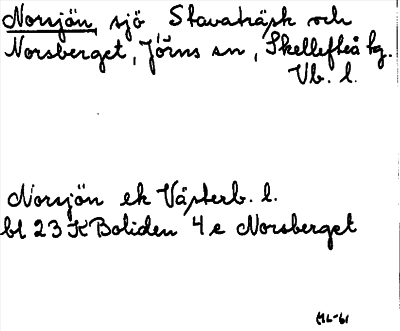 Norsjön, sjö Stavaträsk och
Norsberget, Jörns sn, Skellefteå tg.
Vb. l.
Norsjön ek Västerb. l.
bl 23 K Boliden 4 e Norsberget
ML-61